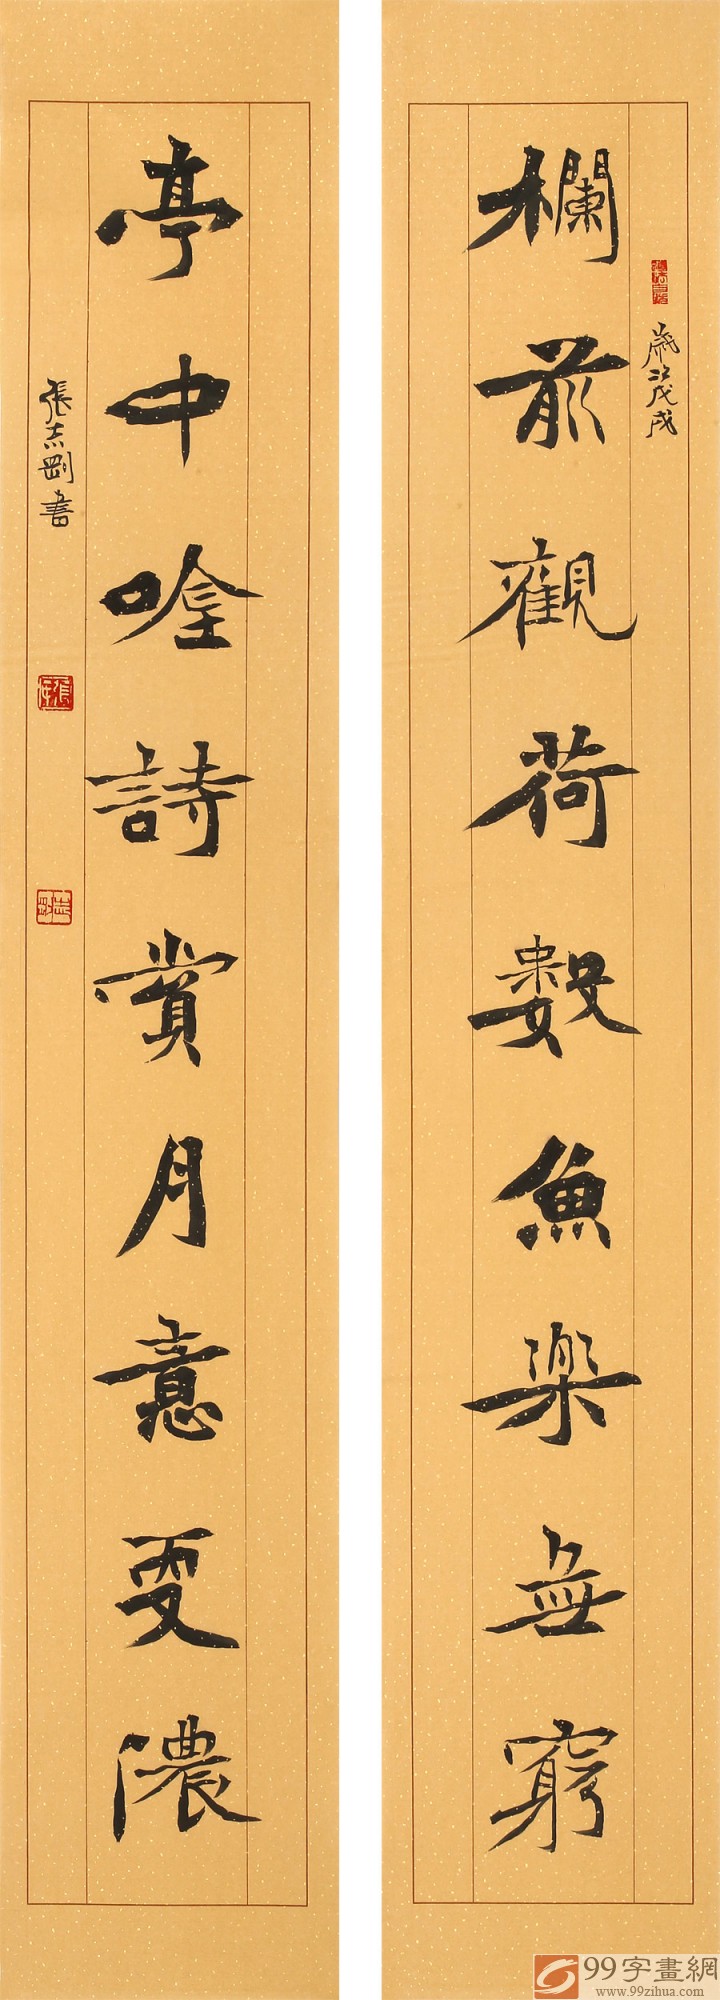 歲次戊戌
欄前觀荷數魚樂無窮
亭中唫詩賞月意更濃
張志剛書
99字畫網
www.99zihua.com